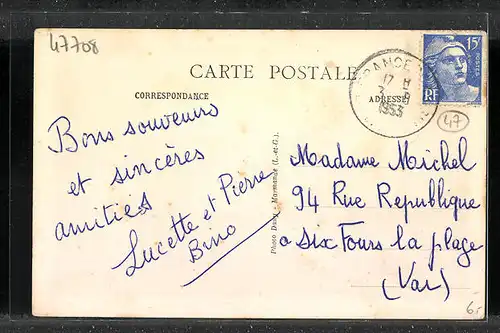 47708
CARTE POSTALE
CORRESPONDANCE
ADRESSE
15F
POSTES
RF
17 H
3 - 8
1953
47
Bons souvenirs
et sincères
amitiés
Lucette et Pierre
Bino
Photo Dubiy - Marmande (L.-et-G.)
Madame Michel
94 Rue Republique
a Six Fours la plage
(Var)